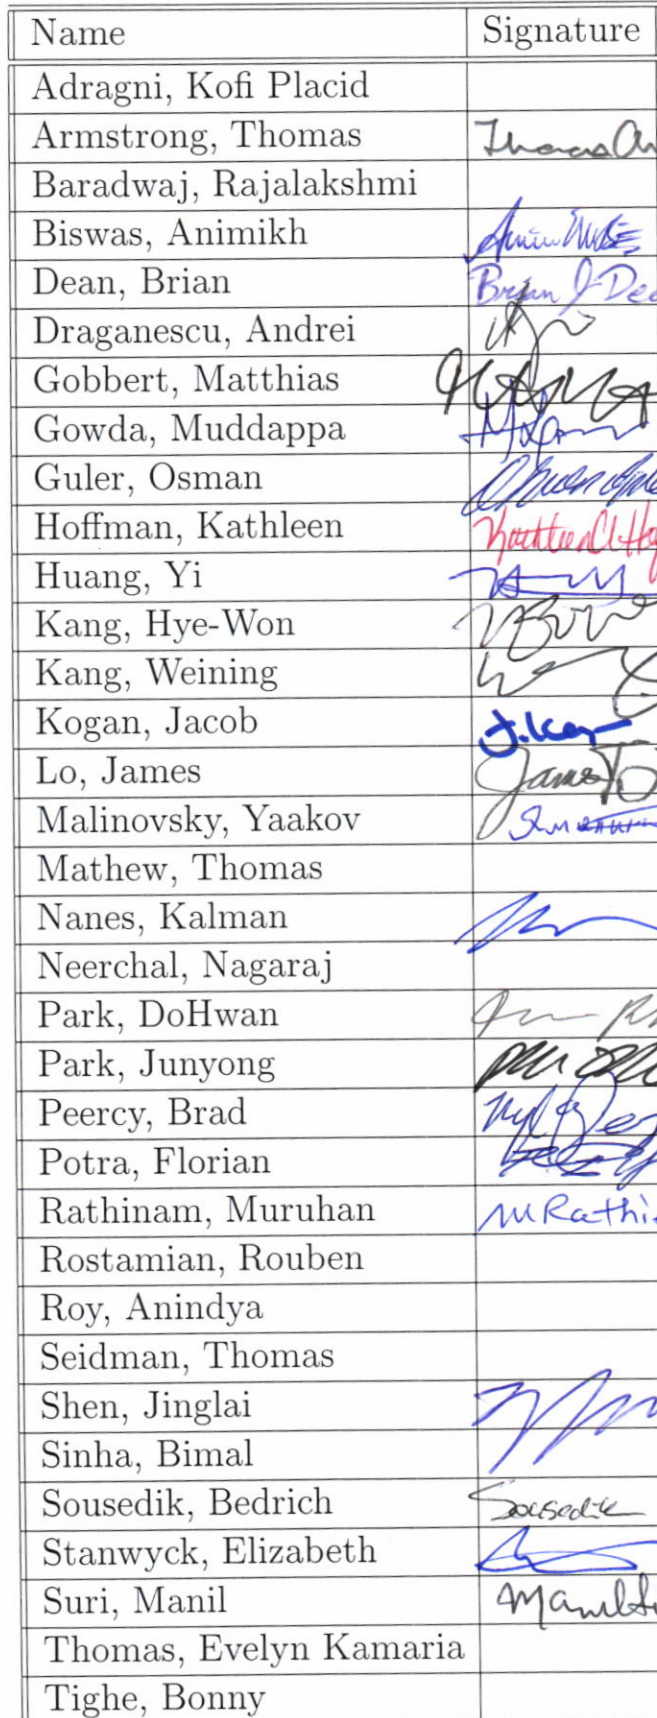 Name Signature
Adragni, Kofi Placid
Armstrong, Thomas Thomas
Baradwaj, Rajalakshmi
Biswas, Animikh
Dean, Brian Brian J Dea
Draganescu, Andrei
Gobbert, Matthias
Gowda, Muddappa
Guler, Osman
Hoffman, Kathleen Kathleen
Huang, Yi
Kang, Hye-Won
Kang, Weining
Kogan, Jacob J. Kog
Lo, James James
Malinovsky, Yaakov
Mathew, Thomas
Nanes, Kalman
Neerchal, Nagaraj
Park, DoHwan
Park, Junyong
Peercy, Brad
Potra, Florian
Rathinam, Muruhan M Rathi
Rostamian, Rouben
Roy, Anindya
Seidman, Thomas
Shen, Jinglai
Sinha, Bimal
Sousedik, Bedrich Sousedik
Stanwyck, Elizabeth
Suri, Manil Manil
Thomas, Evelyn Kamaria
Tighe, Bonny